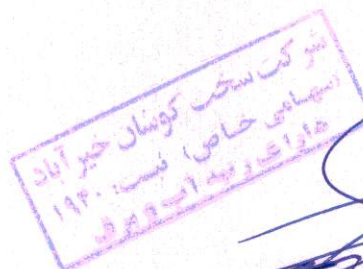 شرکت سخت کوشان خیر آباد
(سهامی خاص) ثبت: ۱۹۴۰
دارای رتبه آب و برق